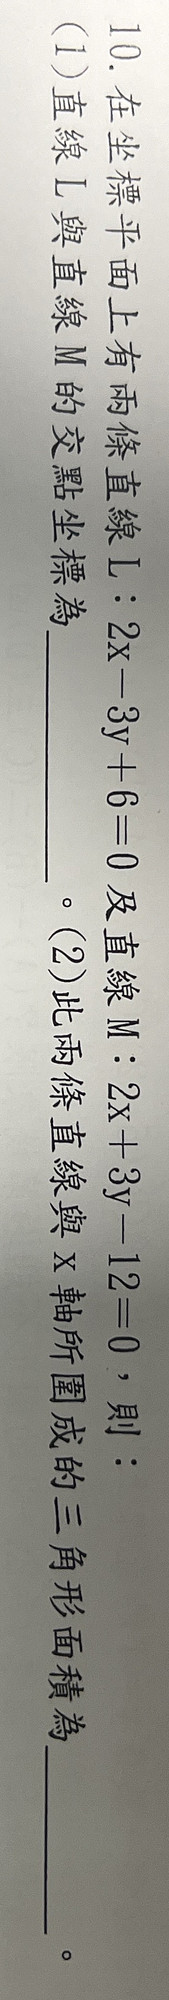 10. 在坐標平面上有兩條直線L：2x－3y＋6＝0及直線M：2x＋3y－12＝0，則：
(1)直線L與直線M的交點坐標為＿＿＿＿＿＿。(2)此兩條直線與x軸所圍成的三角形面積為＿＿＿＿＿。